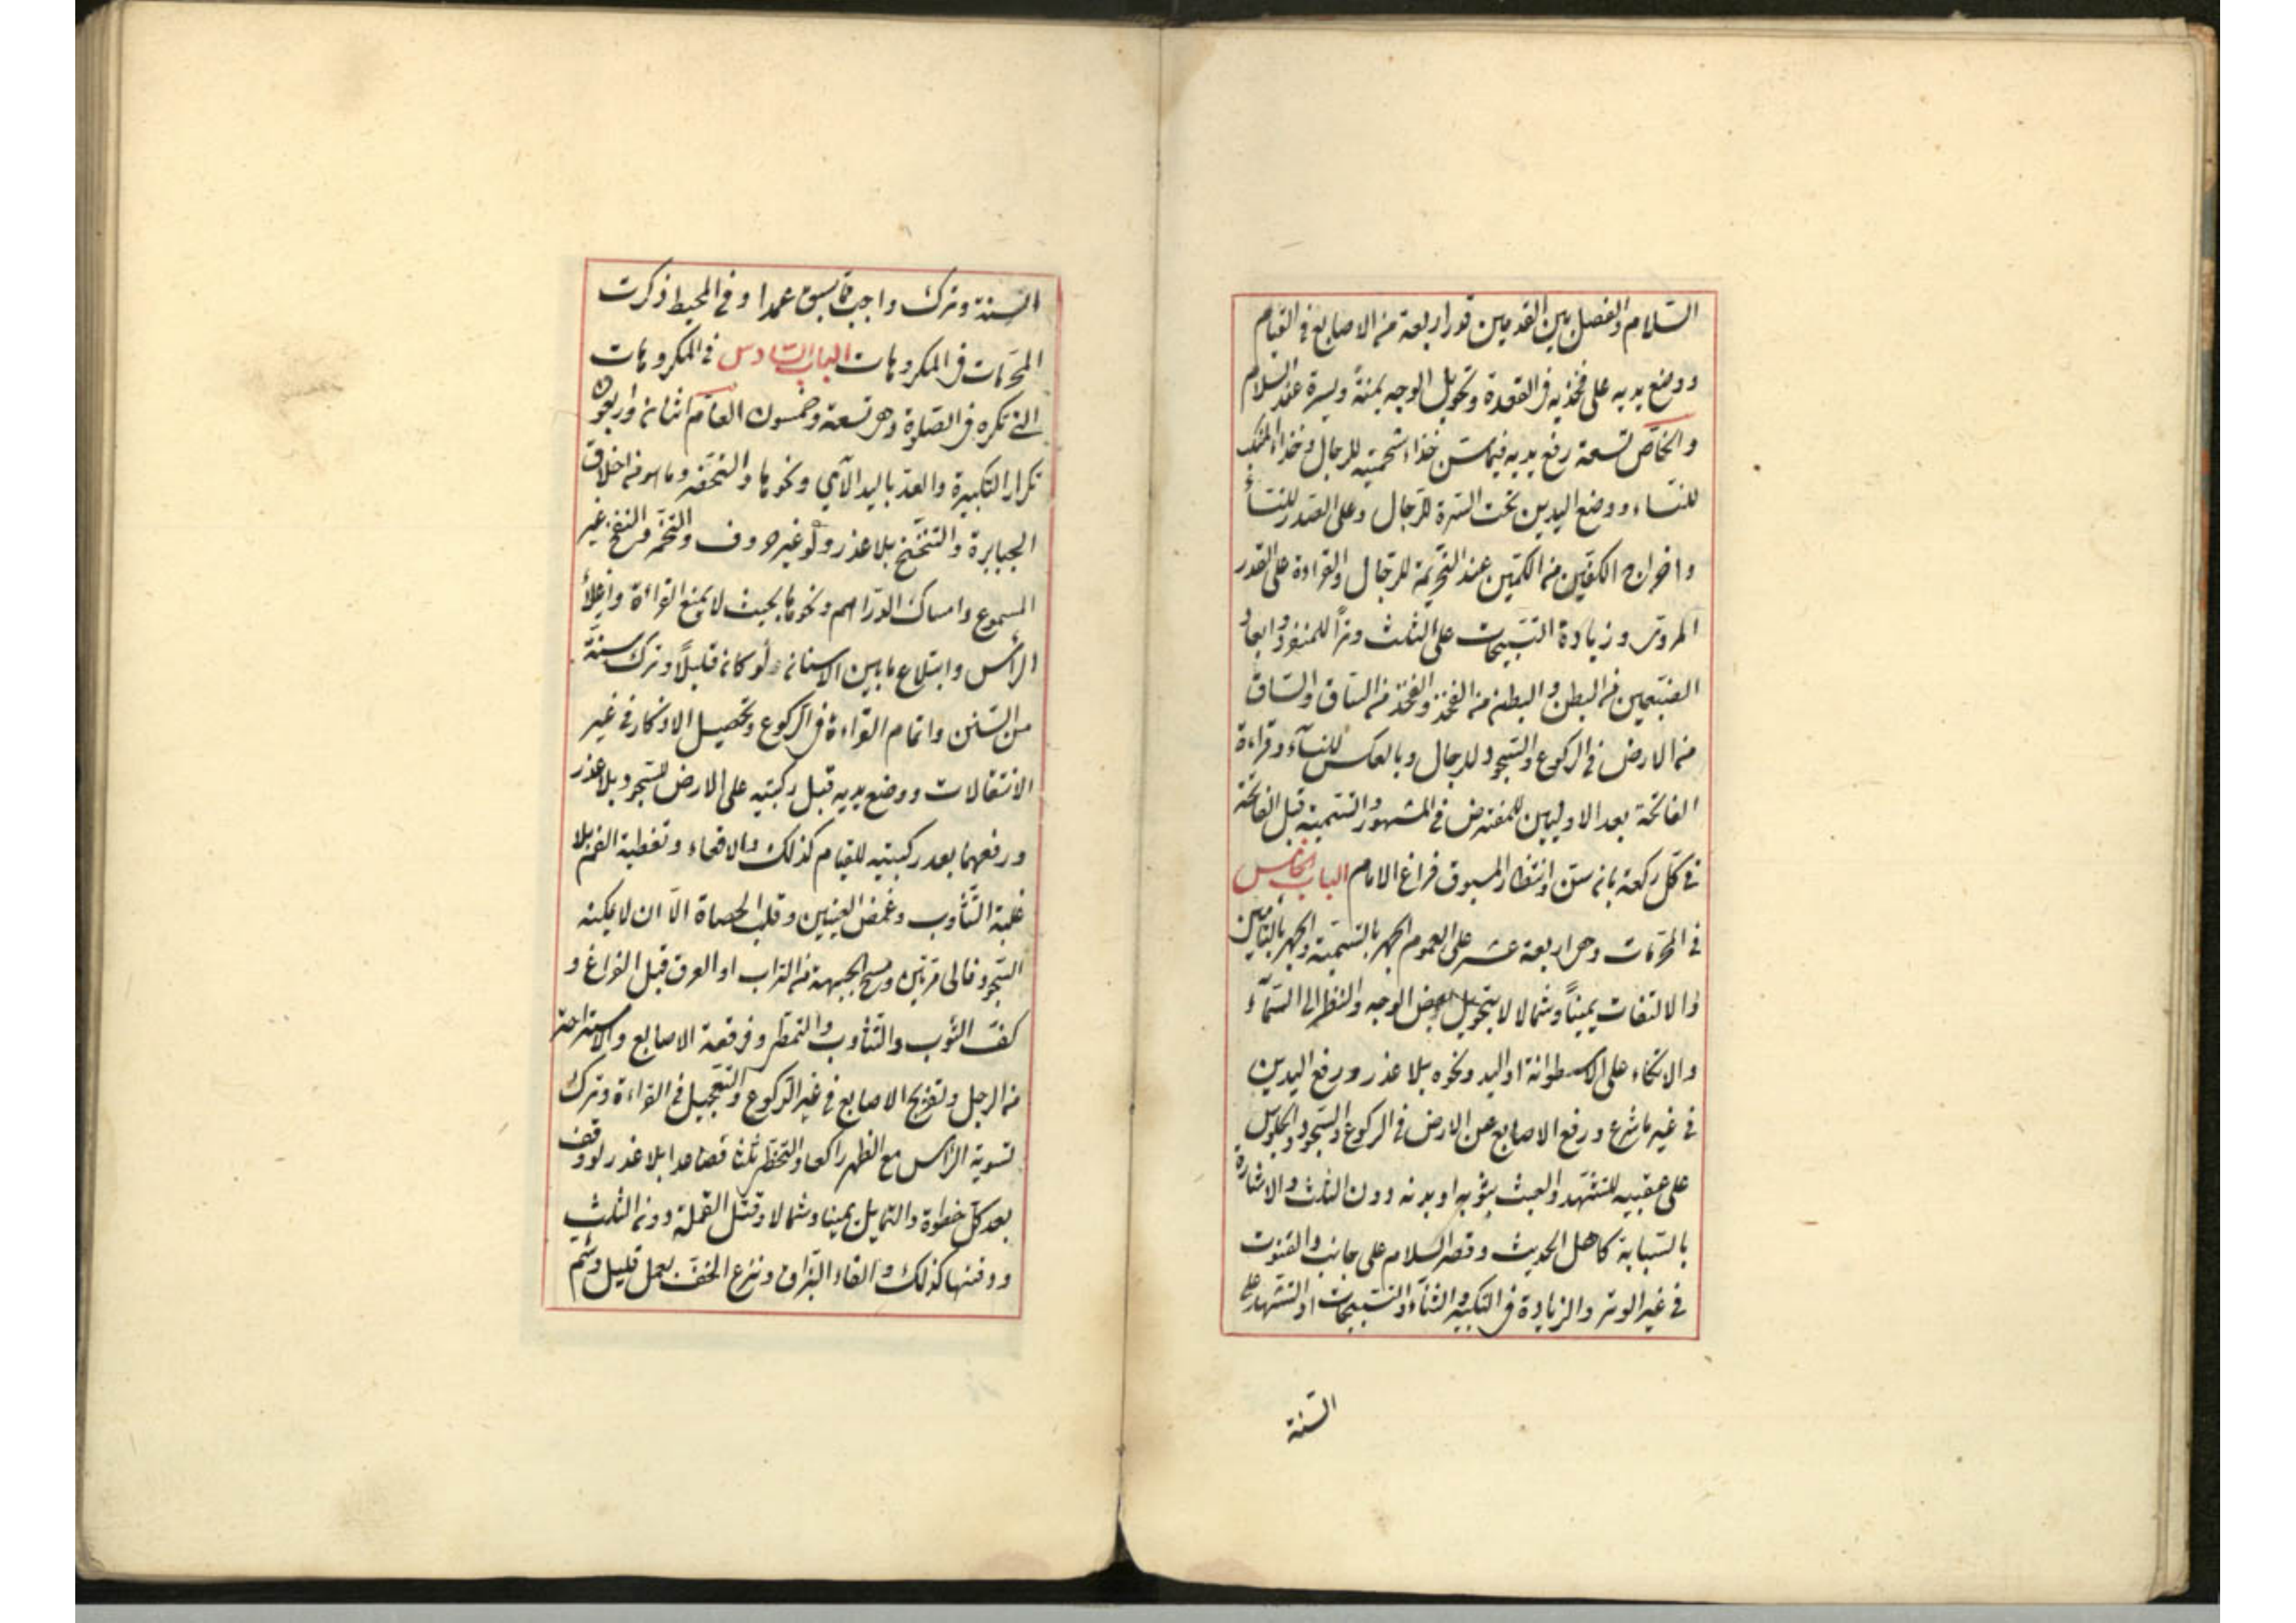 السلام والفصل بين القدمين قدر اربعة من الاصابع في القيام
ووضع يديه على فخذيه في القعدة وتحويل الوجه يمنة ويسرة عند السلام
والخاص تسعة رفع يديه فيما سن حذاء شحمتيه للرجال وحذاء المنكب
للنساء ووضع اليدين تحت السرة للرجال وعلى الصدر للنساء
واخراج الكفين من الكمين عند التحريمة للرجال والقراءة على القدر
المروى وزيادة التسبيحات على الثلث وترا للمنفرد وابعاد
الضبعين من البطن والبطن من الفخذ والفخذ من الساق والساق
من الارض في الركوع والسجود للرجال وبالعكس للنساء وقراءة
الفاتحة بعد الاوليين للمفترض في المشهور والتسمية قبل الفاتحة
في كل ركعة بانه سنن وانتظار المسبوق فراغ الامام الباب الخامس
في المحرمات وهى اربعة عشر على العموم الجهر بالتسمية والجهر بالتأمين
والالتفات يمينا وشمالا لا بتحويل بعض الوجه والنظر الى السماء
والاتكاء على الاسطوانة او اليد ونحوه بلا عذر ورفع اليدين
في غير ما شرع ورفع الاصابع عن الارض في الركوع والسجود والجلوس
على عقبيه للتشهد والعبث بثوبه او بدنه دون الثلث والاشارة
بالسبابة كاهل الحديث وقصر السلام على جانب والقنوت
في غير الوتر والزيادة في التكبير والثناء والتسبيحات او التشهد على
السنة
السنة وترك واجب مما سبق عمدا وفي المحيط ذكرت
المحرمات في المكروهات الباب السادس في المكروهات
التي تكره في الصلوة وهى تسعة وخمسون العام اثنان واربعون
تكرار التكبيرة والعد باليد الآي ونحوها والتخصر وما هو من اخلاق
الجبابرة والتنحنح بلا عذر ولو غير حروف والتنخم والنفخ غير
المسموع وامساك الدراهم ونحوها بحيث لا يمنع القراءة واعلاء
الرأس وابتلاع ما بين الاسنان ولو كان قليلا وترك سنة
من السنن واتمام القراءة في الركوع وتحصيل الاذكار في غير
الانتقالات ووضع يديه قبل ركبتيه على الارض للسجود بلا عذر
ورفعهما بعد ركبتيه للقيام كذلك والاقعاء وتغطية الفم بلا
غلبة التثاوب وغمض العينين وقلب الحصاة الا ان لا يمكنه
السجود فالى مرتين ومسح الجبهة من التراب او العرق قبل الفراغ و
كف الثوب والتثاوب والتمطى وفرقعة الاصابع والاستراحة
من الرجل وتفريج الاصابع في غير الركوع والتعجيل في القراءة وترك
تسوية الرأس مع الظهر راكعا والتخطى ثلثا فصاعدا بلا عذر لو وقف
بعد كل خطوة والتمايل يمينا وشمالا وقتل القملة دون الثلث
ودفنها كذلك والقاء البزاق ونزع الخف بعمل قليل وشم